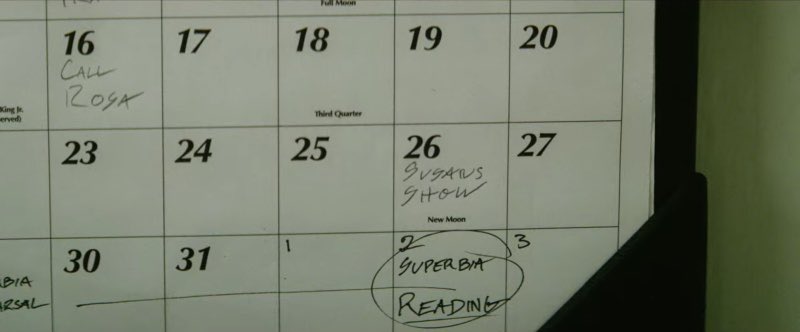 Full Moon
16 17 18 19 20
CALL
ROSA
King Jr.
Third Quarter
23 24 25 26 27
SUSAN'S
SHOW
New Moon
30 31 1 2 3
SUPERBIA
READING